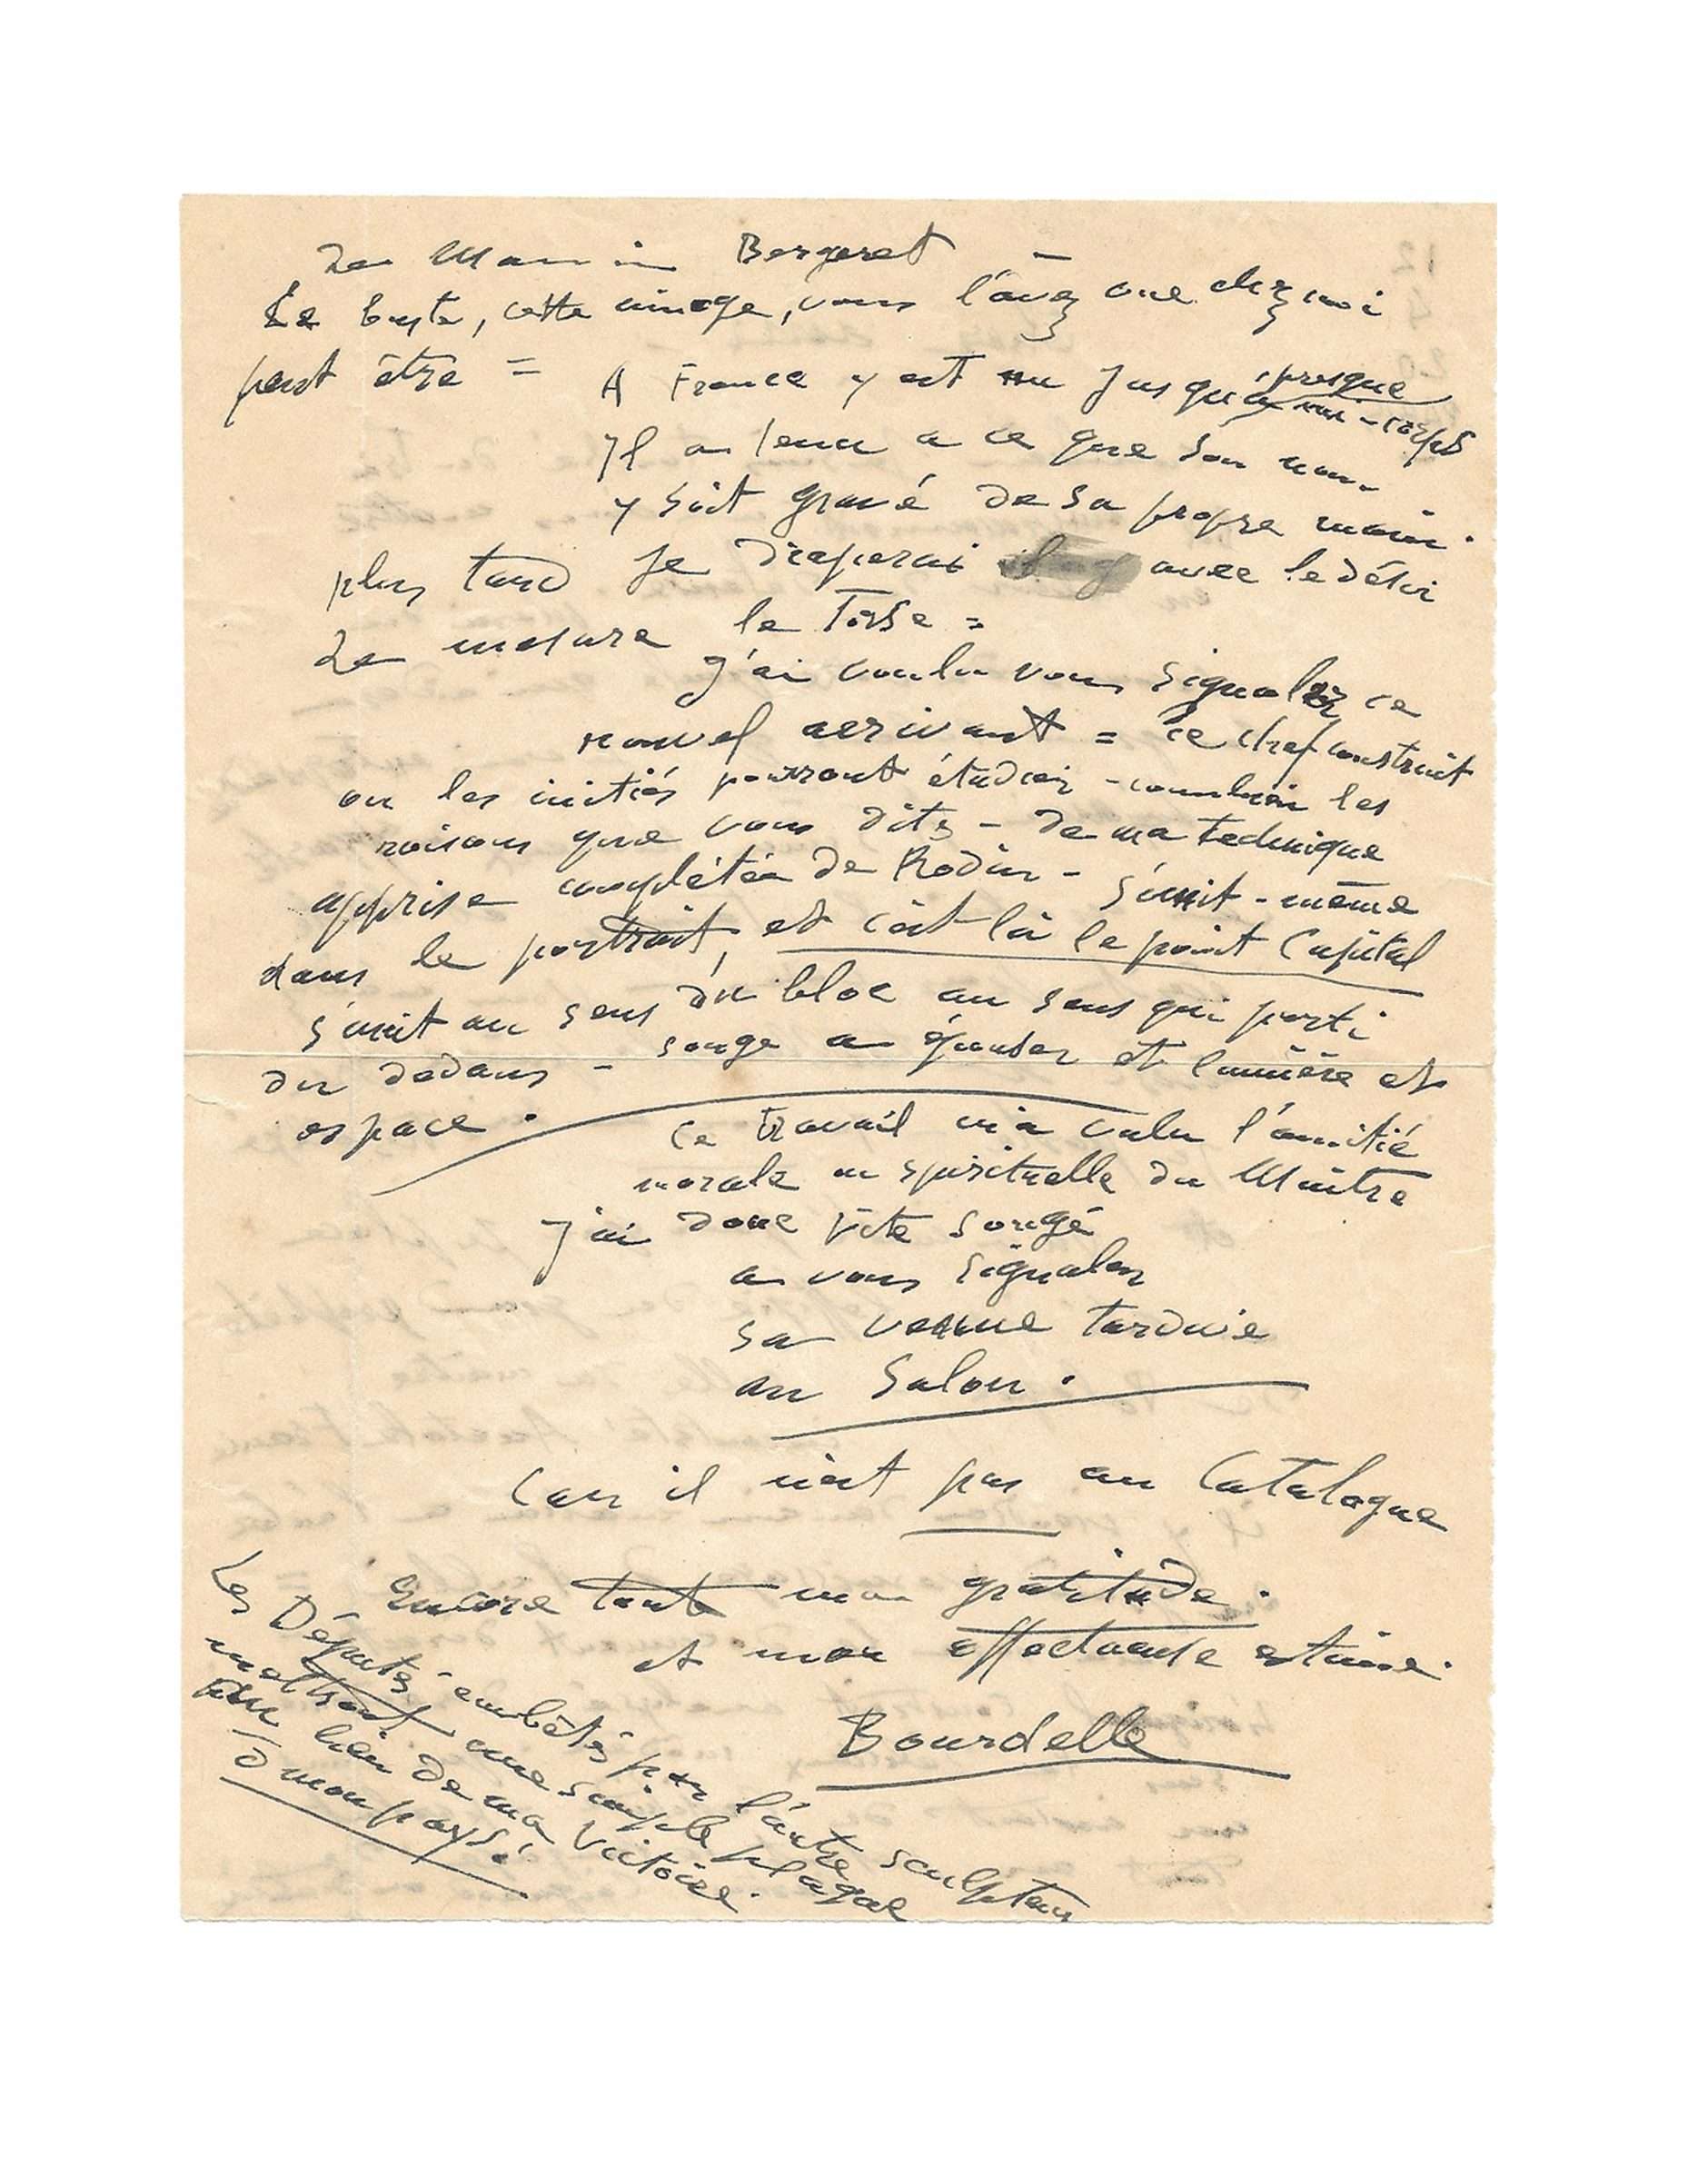 de Monsieur Bergeret —
Le buste, cette image, vous l'avez vue chez moi
peut être =
A France y est nu jusqu'à presque mi-corps
Il a tenu a ce que son nom
y soit gravé de sa propre main.
plus tard je draperai avec le désir
de mesure le Torse =
J'ai voulu vous signaler ce
nouvel arrivant = ce chef construit
ou les initiés pourront étudier - combien les
raisons que vous dites - de ma technique
apprise complétée de Rodin - s'unit - même
dans le portrait, et c'est là le point Capital
s'unit au sens du bloc au sens qui parti
du dedans - songe a épouser et lumière et
espace.
Ce travail m'a valu l'amitié
morale ou spirituelle du Maître
J'ai donc vite songé
a vous signaler
sa venue tardive
au Salon.
Car il n'est pas au Catalogue
Encore toute ma gratitude.
et mon affectueuse estime.
Bourdelle
Les Députés embêtés par l'autre sculpteur
mettront une simple plaque
au lieu de ma Victoire.
O mon pays!